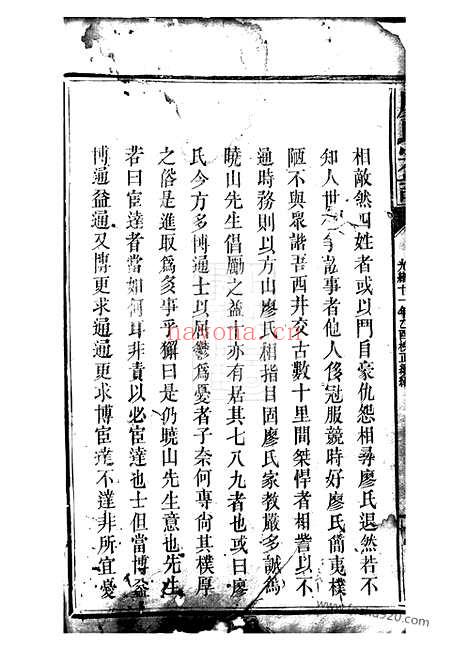 相敵然四姓者或以門自豪仇怨相尋廖氏退然若不
知人世爭訟事者他人侈冠服競時好廖氏簡夷樸
陋不與眾諧吾西井交古數十里間桀悍者相詈以不
通時務則以方山廖氏相指目固廖氏家教嚴多誠為
曉山先生倡勵之益亦有居其七八九者也或曰廖
氏今方多博通士以困鬱為憂者子奈何專尚其樸厚
之俗是進取為亥事乎獬曰是仍曉山先生意也先生
若曰宦達者當如何耳非責以必宦達也士但當博益
博通益通又博更求通通更求博宦達不達非所宜憂
光緒十一年乙酉
nanona.cn